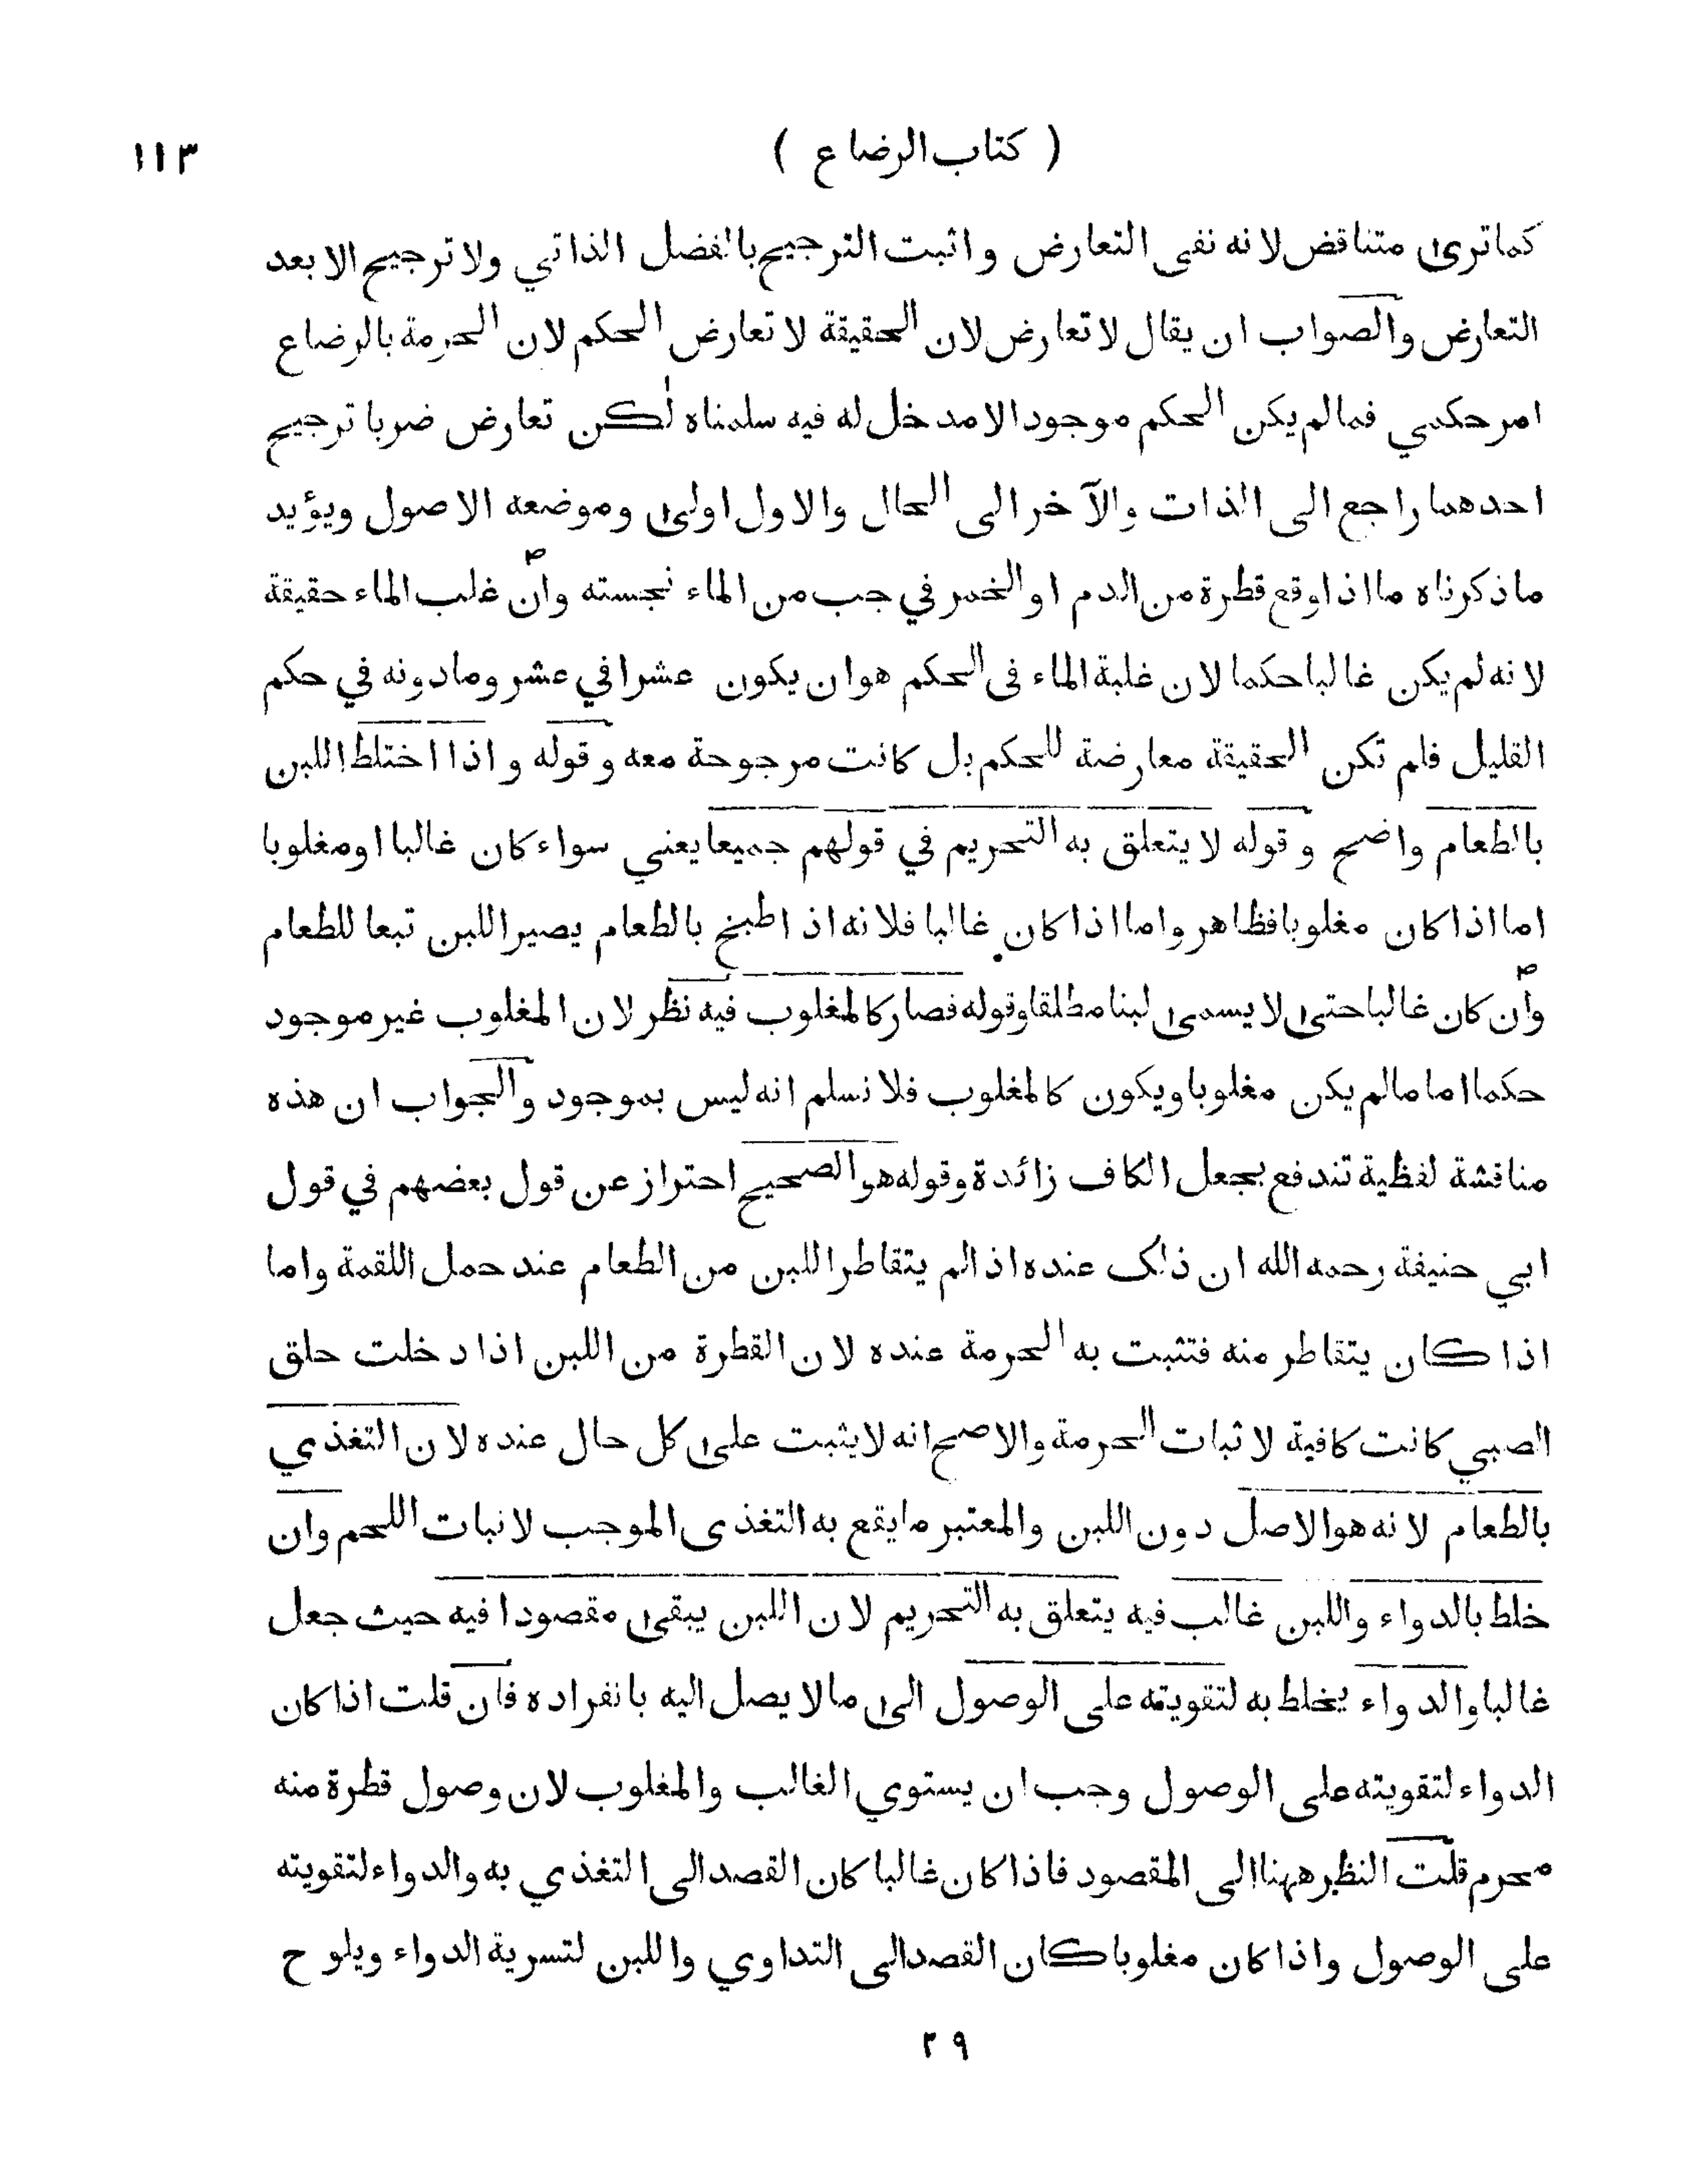 ( كتاب الرضاع )
١١٣
كما ترى متناقض لانه نفى التعارض واثبت الترجيح بالفضل الذاتي ولا ترجيح الا بعد
التعارض والصواب ان يقال لا تعارض لان الحقيقة لا تعارض الحكم لان الحرمة بالرضاع
امر حكمي فما لم يكن الحكم موجودا لا مدخل له فيه سلمناه لكن تعارض ضربا ترجيح
احدهما راجع الى الذات والآخر الى الحال والاول اولى وموضعه الاصول ويؤيد
ما ذكرناه ما اذا وقع قطرة من الدم او الخمر في جب من الماء نجسته وان غلب الماء حقيقة
لانه لم يكن غالبا حكما لان غلبة الماء فى الحكم هو ان يكون عشرا في عشر وما دونه في حكم
القليل فلم تكن الحقيقة معارضة للحكم بل كانت مرجوحة معه وقوله واذا اختلط اللبن
بالطعام واضح وقوله لا يتعلق به التحريم في قولهم جميعا يعني سواء كان غالبا او مغلوبا
اما اذا كان مغلوبا فظاهر واما اذا كان غالبا فلانه اذ اطبخ بالطعام يصير اللبن تبعا للطعام
وان كان غالبا حتى لا يسمى لبنا مطلقا وقوله فصار كالمغلوب فيه نظر لان المغلوب غير موجود
حكما اما ما لم يكن مغلوبا ويكون كالمغلوب فلا نسلم انه ليس بموجود والجواب ان هذه
مناقشة لفظية تندفع بجعل الكاف زائدة وقوله هو الصحيح احتراز عن قول بعضهم في قول
ابي حنيفة رحمه الله ان ذلك عنده اذ الم يتقاطر اللبن من الطعام عند حمل اللقمة واما
اذا كان يتقاطر منه فتثبت به الحرمة عنده لان القطرة من اللبن اذا دخلت حلق
الصبي كانت كافية لا ثبات الحرمة والاصح انه لا يثبت على كل حال عنده لان التغذي
بالطعام لانه هو الاصل دون اللبن والمعتبر ما يقع به التغذى الموجب لانبات اللحم وان
خلط بالدواء واللبن غالب فيه يتعلق به التحريم لان اللبن يبقى مقصودا فيه حيث جعل
غالبا والدواء يخلط به لتقويته على الوصول الى ما لا يصل اليه بانفراده فان قلت اذا كان
الدواء لتقويته على الوصول وجب ان يستوي الغالب والمغلوب لان وصول قطرة منه
محرم قلت النظر ههنا الى المقصود فاذا كان غالبا كان القصد الى التغذي به والدواء لتقويته
على الوصول واذا كان مغلوبا كان القصد الى التداوي واللبن لتسرية الدواء ويلوح
٢٩